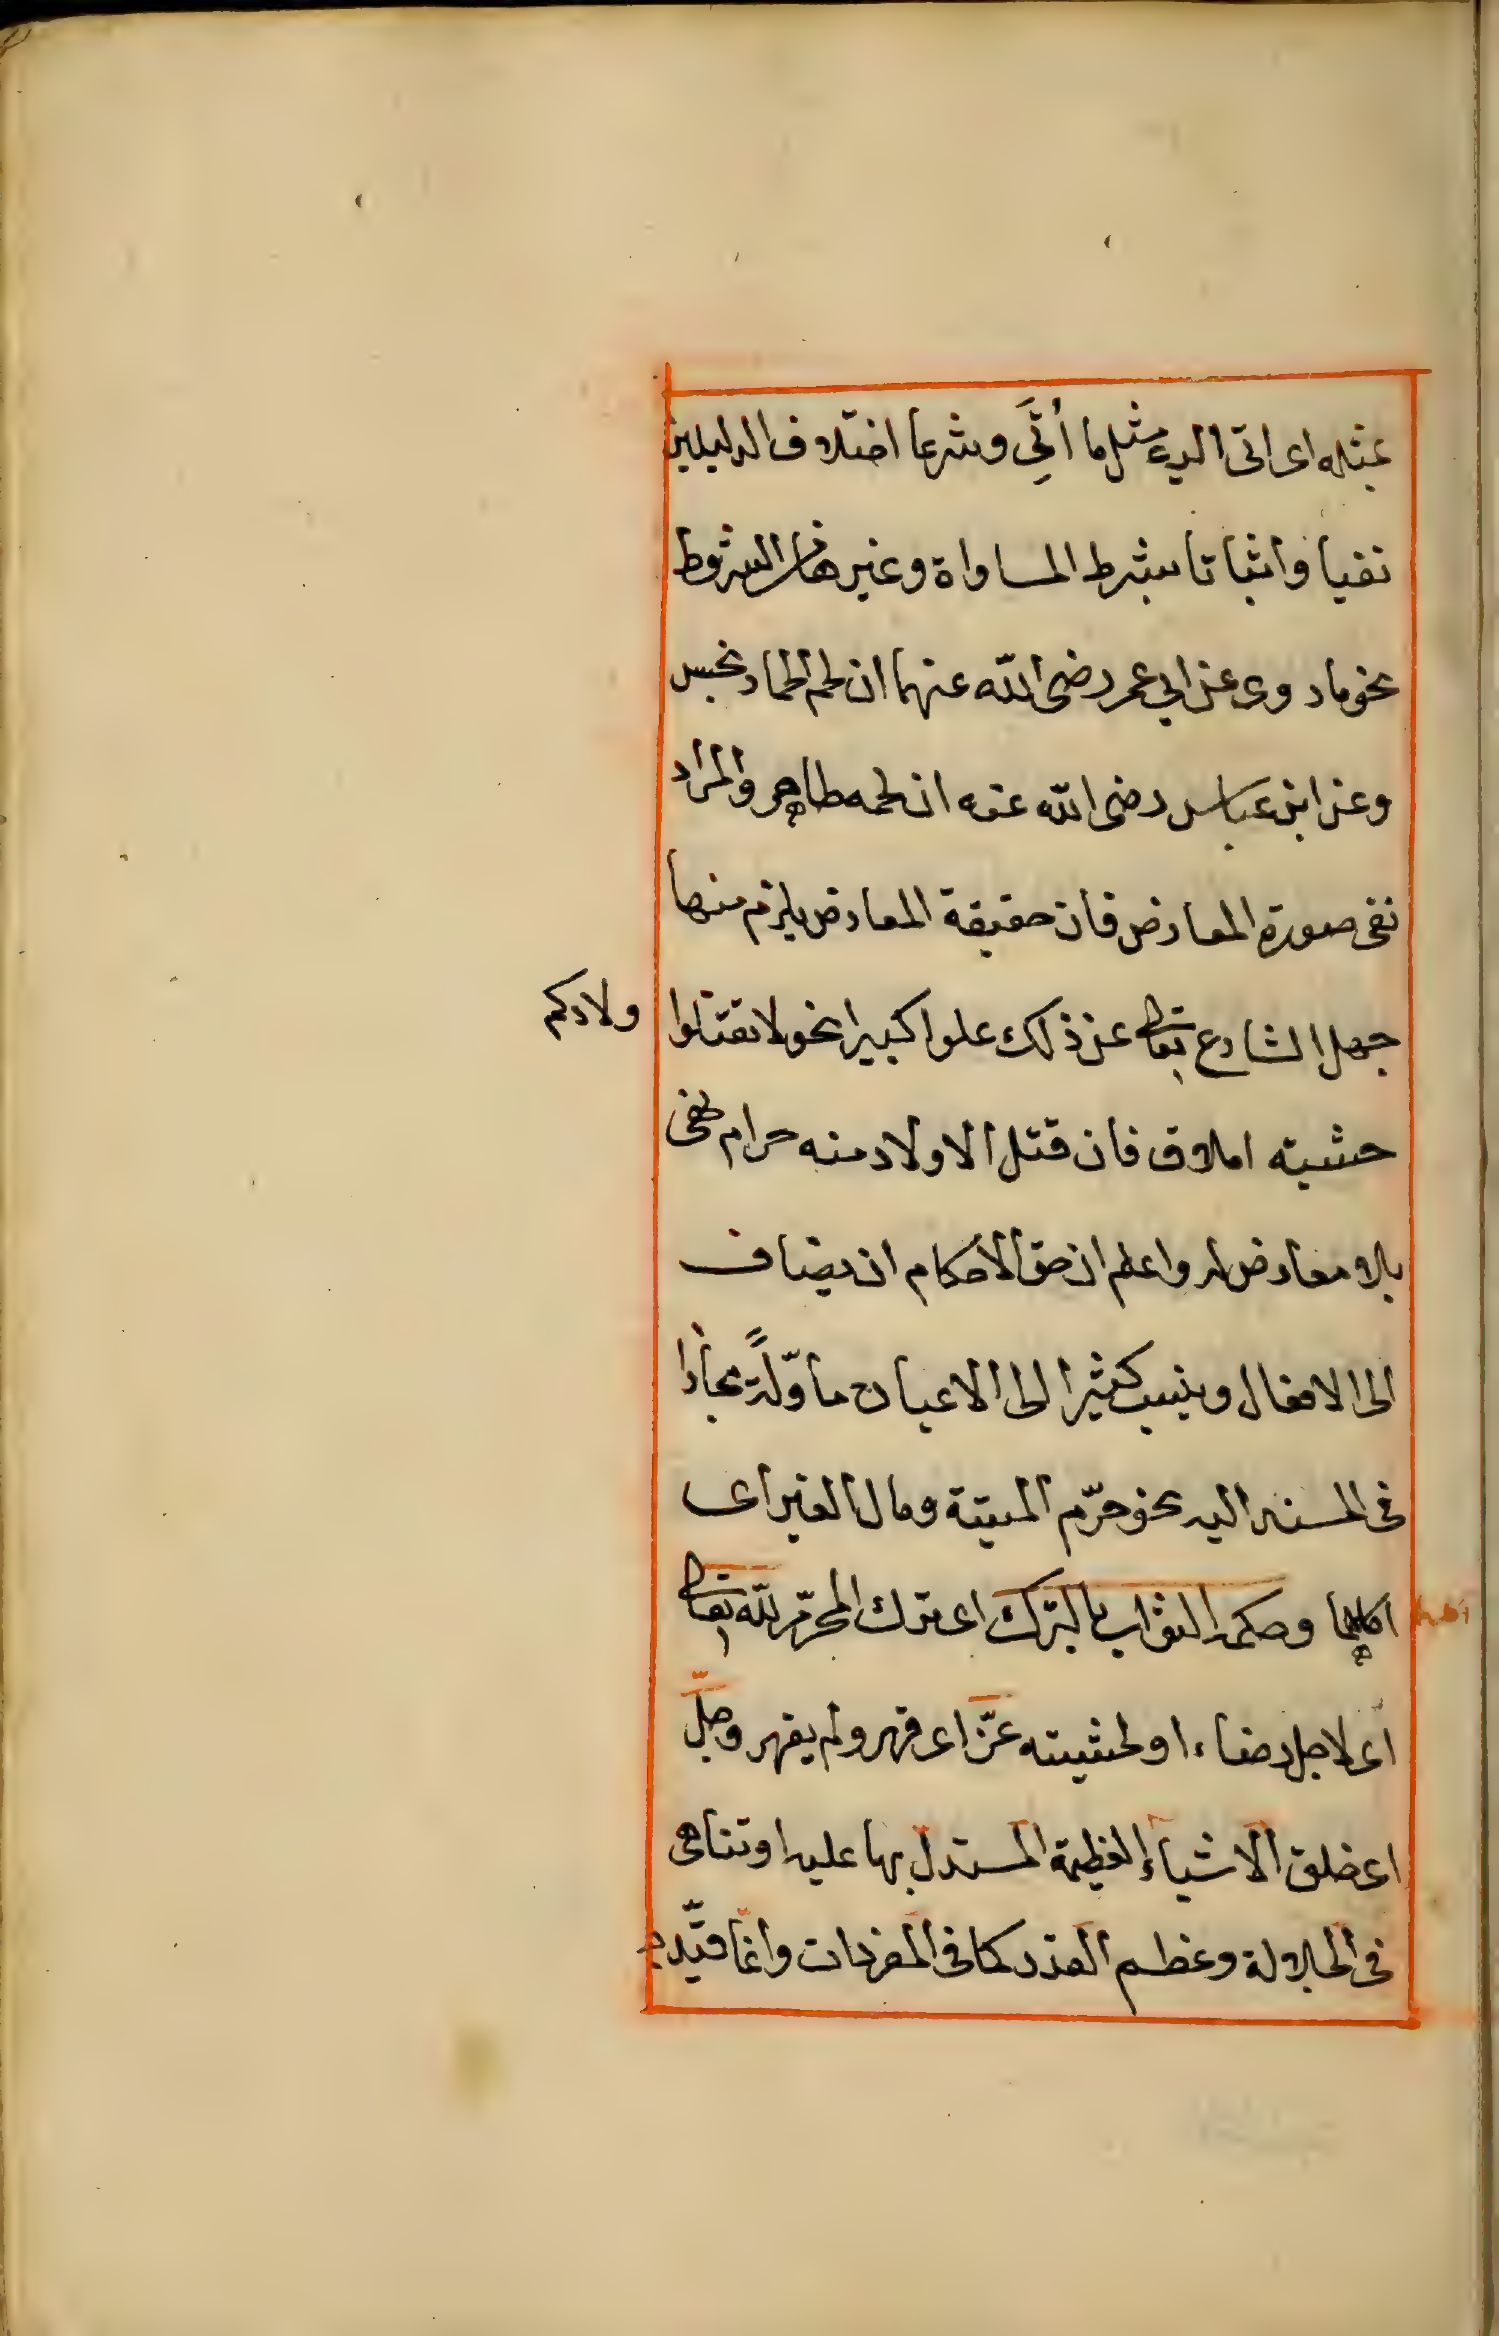 بمثله اى اتى اليه مثل ما أتى وشرعا اختلاف الدليلين
نفيا واثباتا بشرط المساواة وغير هذا الشروط
نحو ما روى عن ابى عمر رضى الله عنهما ان لحم الحمار نجس
وعن ابن عباس رضى الله عنه ان لحمه طاهر والمراد
نفى صورة المعارض فان حقيقة المعارض يلزم منها
جهل الشارع تعالى عن ذلك علوا كبيرا نحو لا تقتلوا ولادكم
خشيته املاق فان قتل الاولاد منه حرام نفى
بلا معارض له واعلم ان حق الاحكام ان يضاف
الى الافعال وينسب كثيرا الى الاعيان مأوّلة مجازا
فى المسند اليه نحو حرّم الميتة ومال الغير اى
اكلهما وحكمه الثواب بالترك اى ترك المحرّم لله تعالى
اى لاجل رضاء او لخشيته عزّ اى قهر ولم يقهر وجلّ
اى خلق الاشياء العظيمة المستدل بها عليه او تناهى
فى الجلالة وعظم القدر كما فى المفردات وانما قيّد به